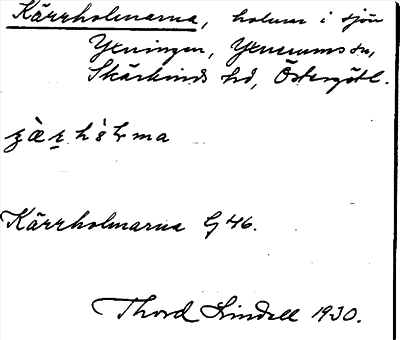 Kärrholmarna, holmar i sjön
Yxningen, Yxnerums sn,
Skärkinds hd, Östergötl.
Kärrholmarna G 46.
Thord Lindell 1930.